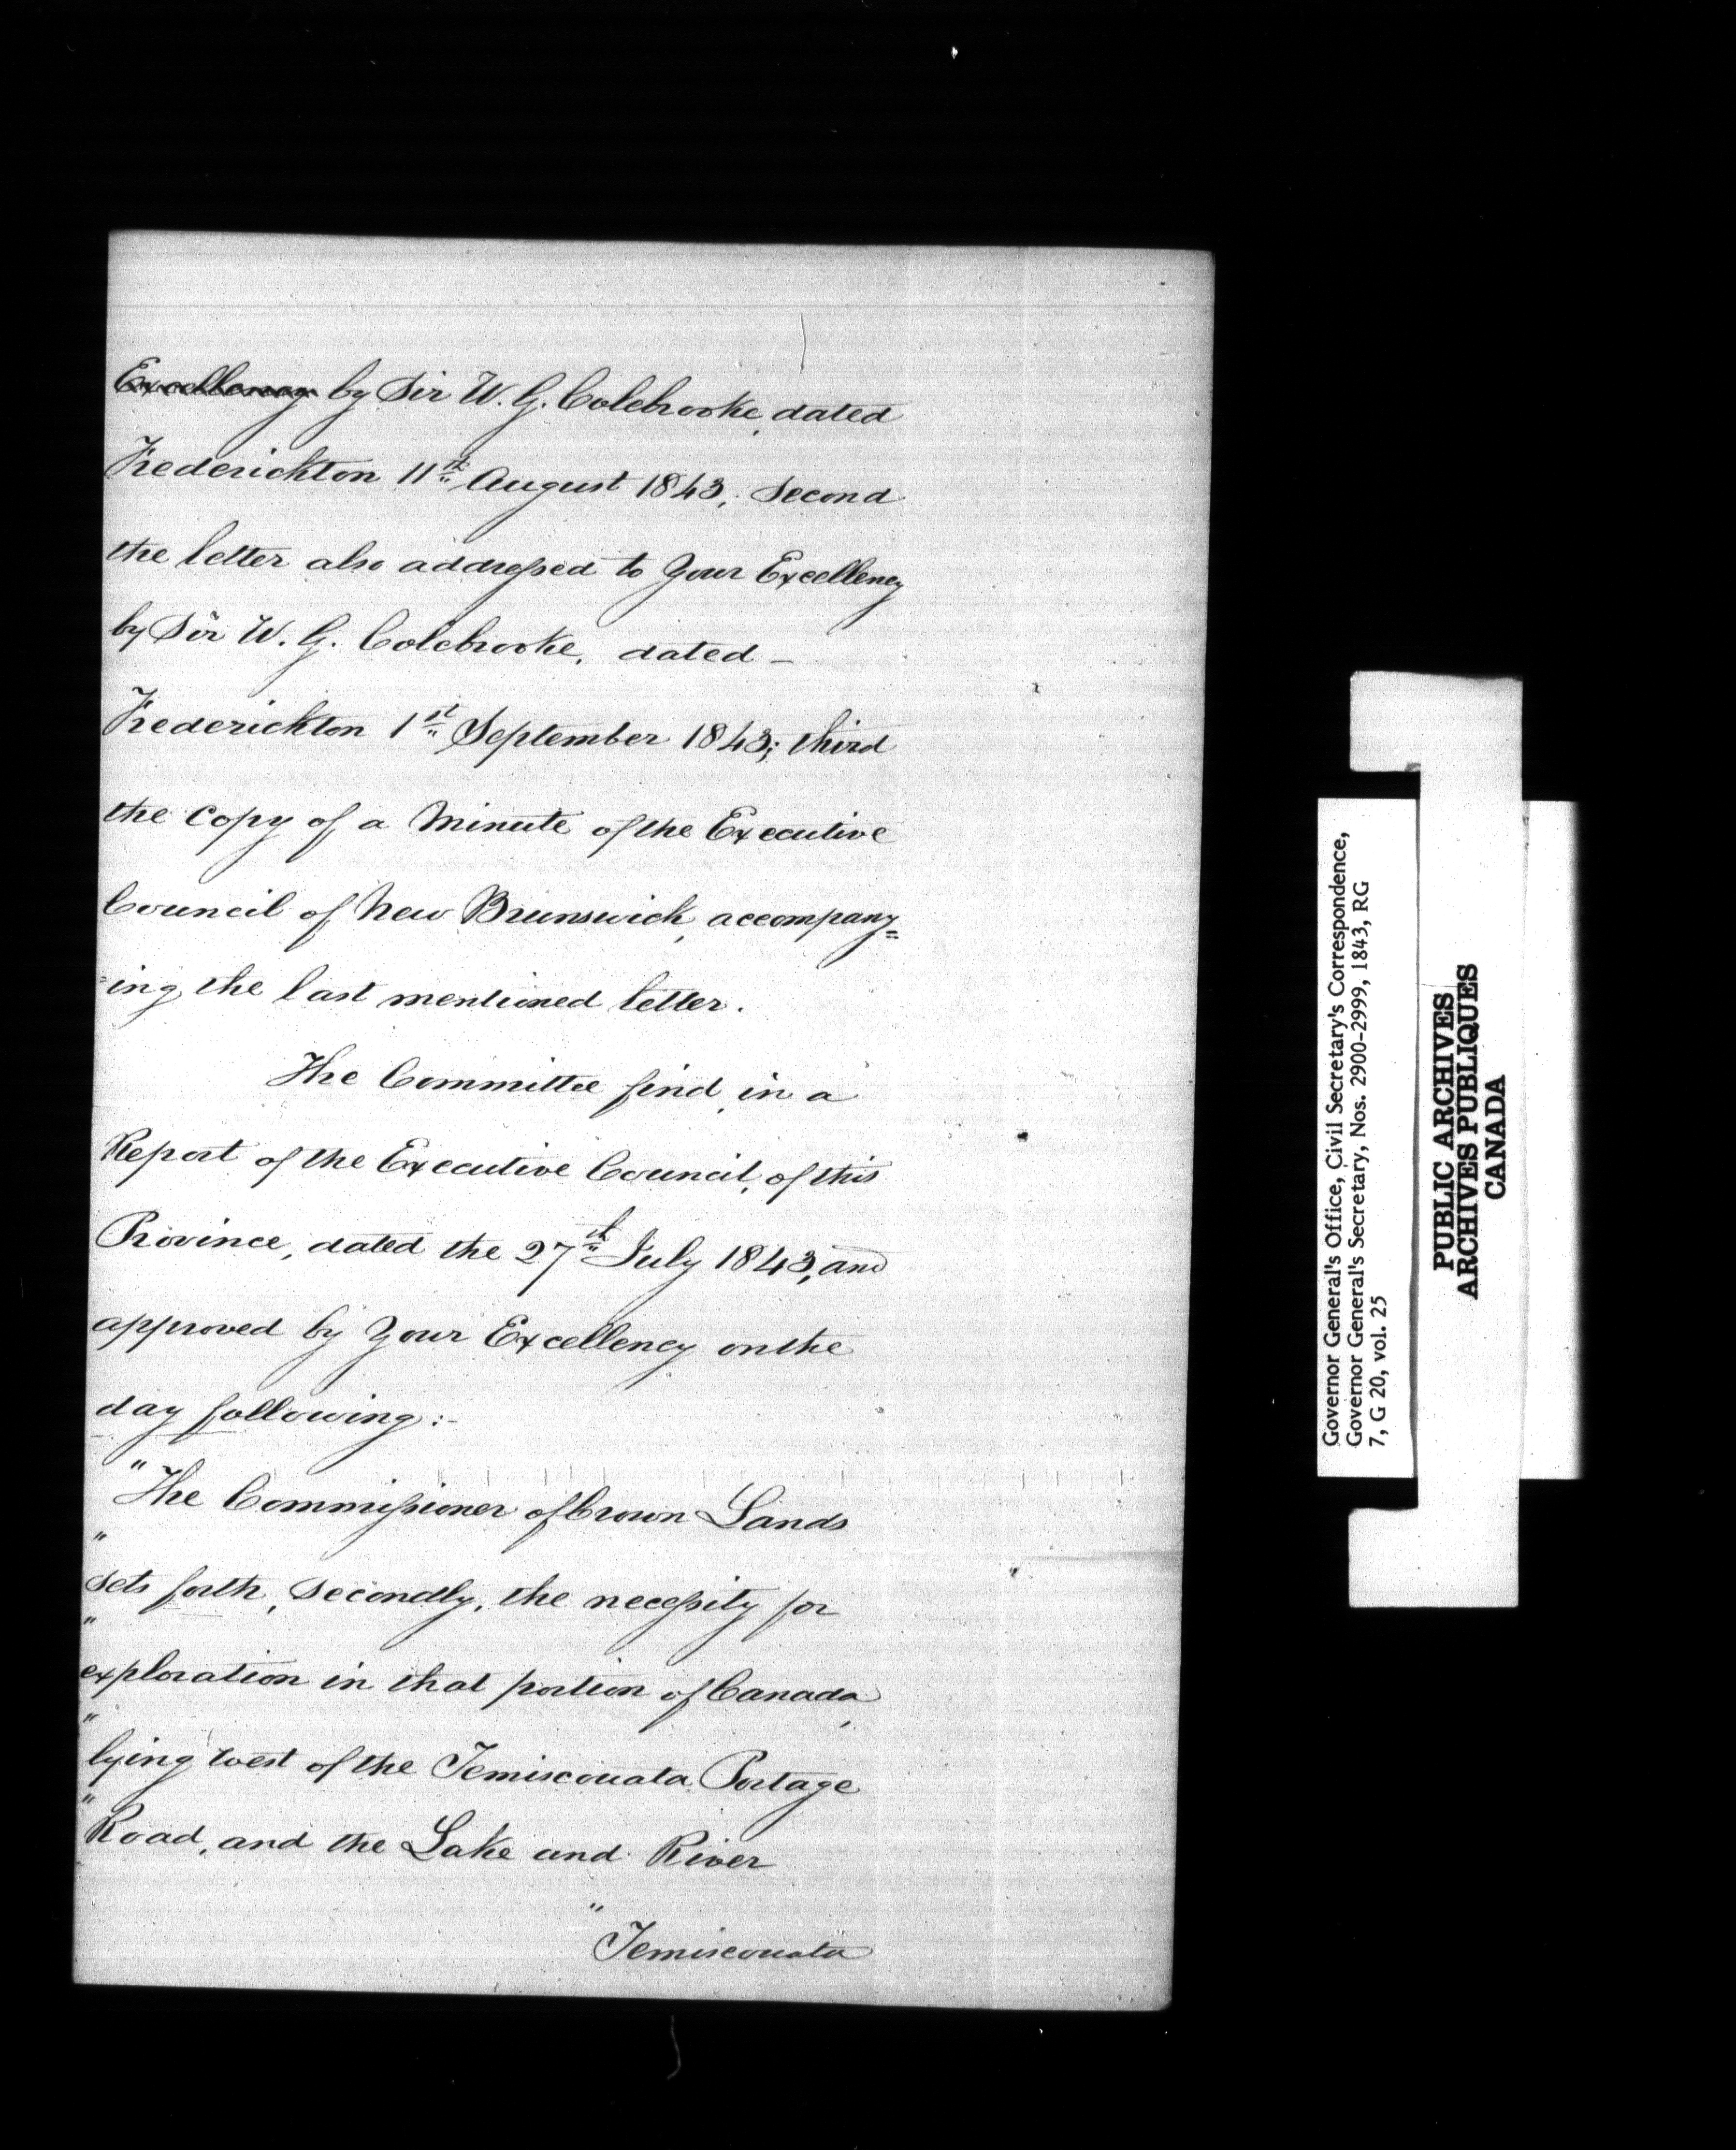 Excellency by Sir W. G. Colebrooke, dated
Frederickton 11th August 1843, second
the letter also addressed to Your Excellency
by Sir W. G. Colebrooke, dated –
Frederickton 1st September 1843; third
the copy of a Minute of the Executive
Council of New Brunswick, accompany=
=ing the last mentioned letter.
The Committee find, in a
Report of the Executive Council, of this
Province, dated the 27th July 1843, and
approved by Your Excellency on the
day following:-
"The Commissioner of Crown Lands
"sets forth, secondly, the necessity for
"exploration in that portion of Canada,
"lying west of the Temiscouata Portage
"Road, and the Lake and River
"Temiscouata
Governor General's Office, Civil Secretary's Correspondence,
Governor General's Secretary, Nos. 2900-2999, 1843, RG
7, G 20, vol. 25
PUBLIC ARCHIVES
ARCHIVES PUBLIQUES
CANADA